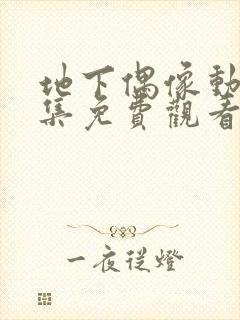 地下偶像動
集免費觀看
一夜從燈